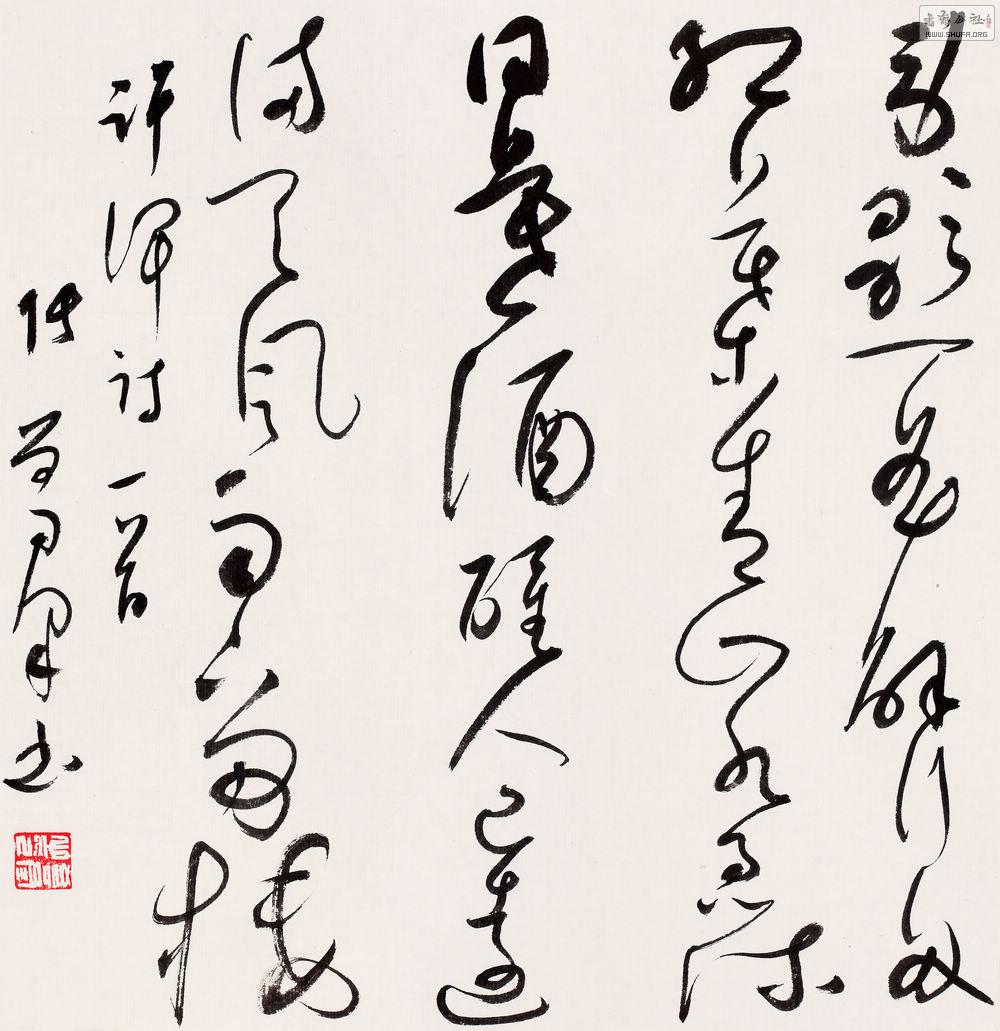 劳歌一曲解行舟
红叶青山水急流
日暮酒醒人已远
满天风雨下西楼
许浑诗一首
书
书法公社
WWW.SHUFA.ORG